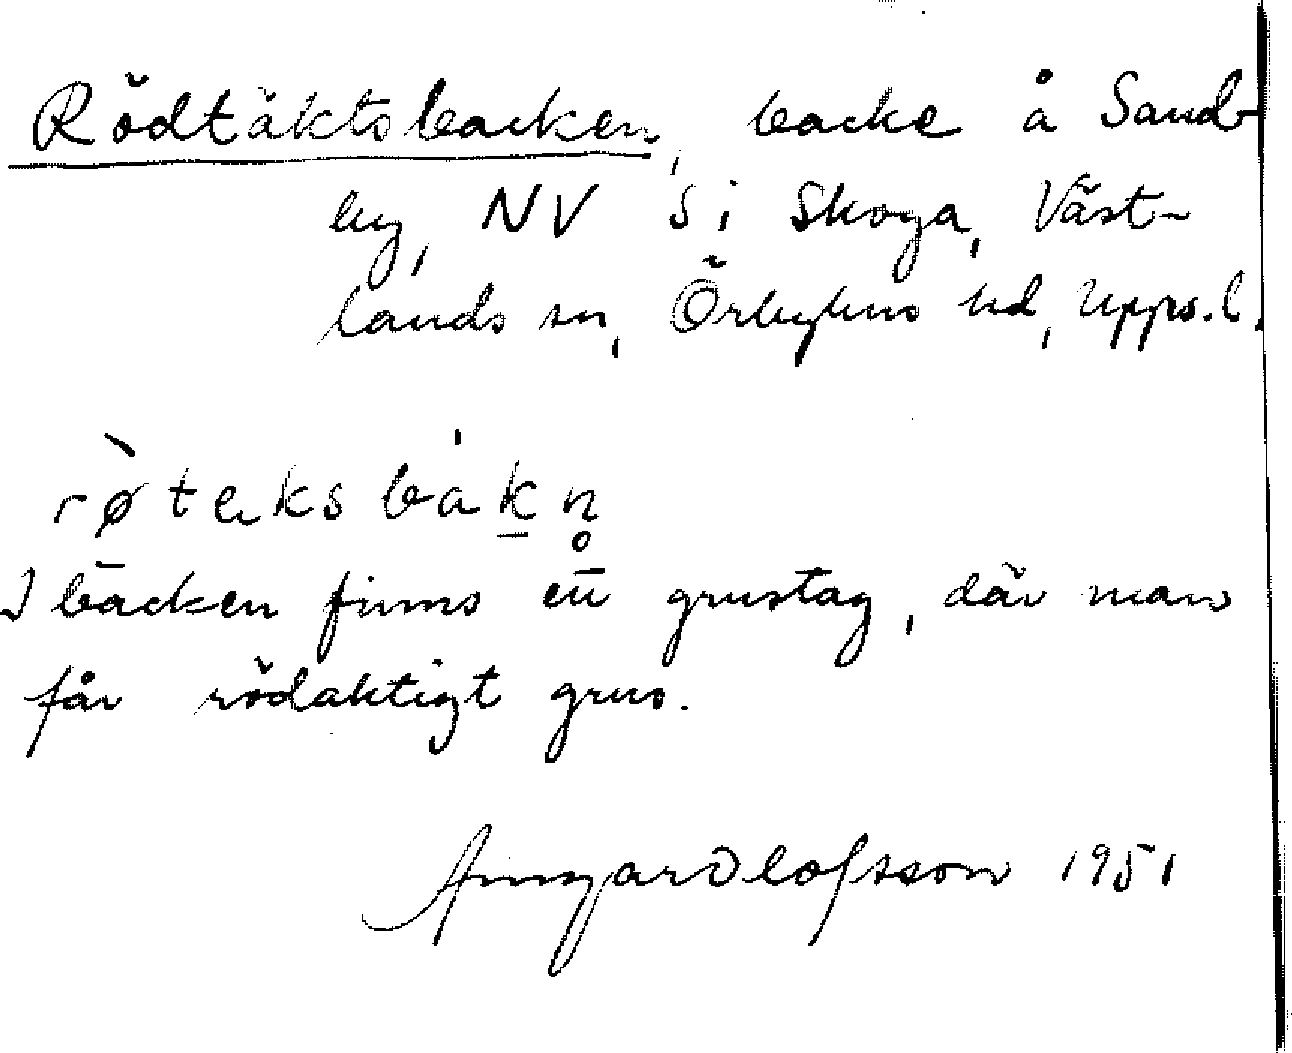 Rödtäktsbacken, backe å Sand-
by, NV S i Skoga, Väst-
lands sn, Örbyhus hd, Upps. l.
rø̀teksbákn̥
I backen finns en grustag, där man
får rödaktigt grus.
Olofsson 1951